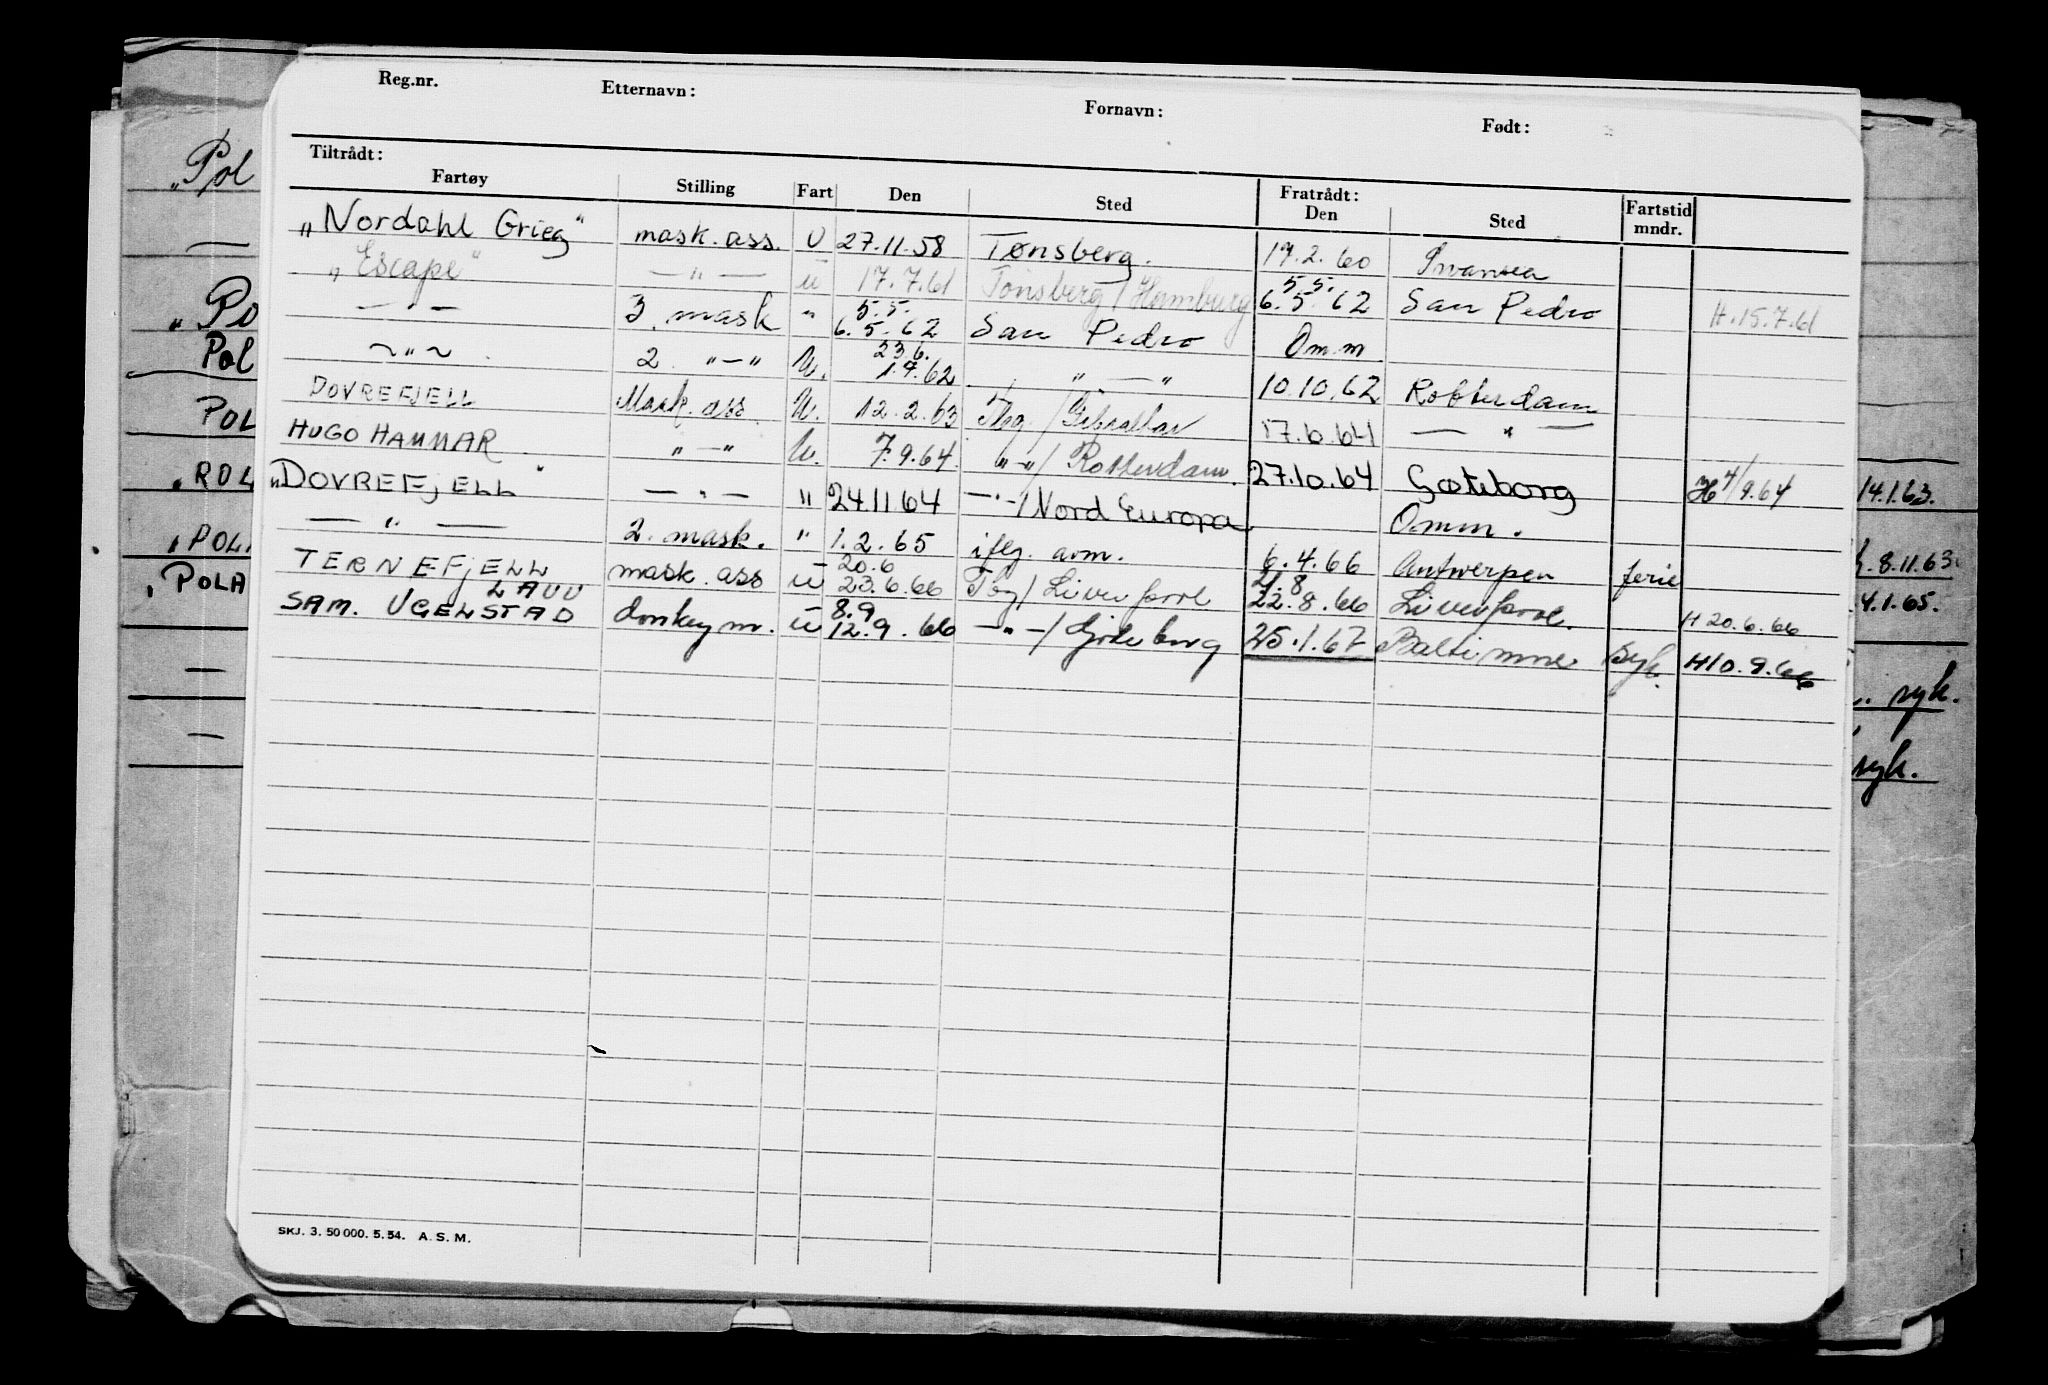 Reg.nr. Etternavn: Fornavn: Født:
Tiltrådt: Fratrådt:
Fartøy Stilling Fart Den Sted Den Sted Fartstid mndr.
„Nordahl Grieg" mask. ass. U 27.11.58 Tønsberg. 19.2.60 Swansea
„Escape" — " — u 17.7.61 Tønsberg / Hamburg 5.5. 6.5.62 San Pedro H.15.7.61
— " — 3. mask " 5.5. 6.5.62 San Pedro Omm
~ " ~ 2. "—" U. 23.6. 1.9.62 " — " 10.10.62 Rotterdam
DOVREFJELL Mask. ass U. 12.2.63 Tbg. / Gibraltar 17.6.64 — " —
HUGO HAMMAR "—" U. 7.9.64. "—" / Rotterdam. 27.10.64 Gøteborg H 4/9.64
„DOVREFjELL" — " — " 24.11 64 — " — / Nord Europa Omm.
— " — 2. mask. " 1.2.65 iflg. avm. 6.4.66 Antwerpen ferie
TERNEFjELL mask. ass u 20.6 23.6.66 Tbg / Liverpool 21.8 22.8.66 Liverpool. H 20.6.66
LAUU
SAM. UGELSTAD donkeym. u 8.9 12.9.66 — " — / Gøteborg 25.1.67 Baltimore Syk. H 10.9.66
SKJ. 3. 50 000. 5. 54. A. S. M.
„Pol
—
„Po
Pol
POL
„ROL 14.1.63.
„POL 8.11.63.
„POLA 4.1.65.
—
syk.
—
syk.